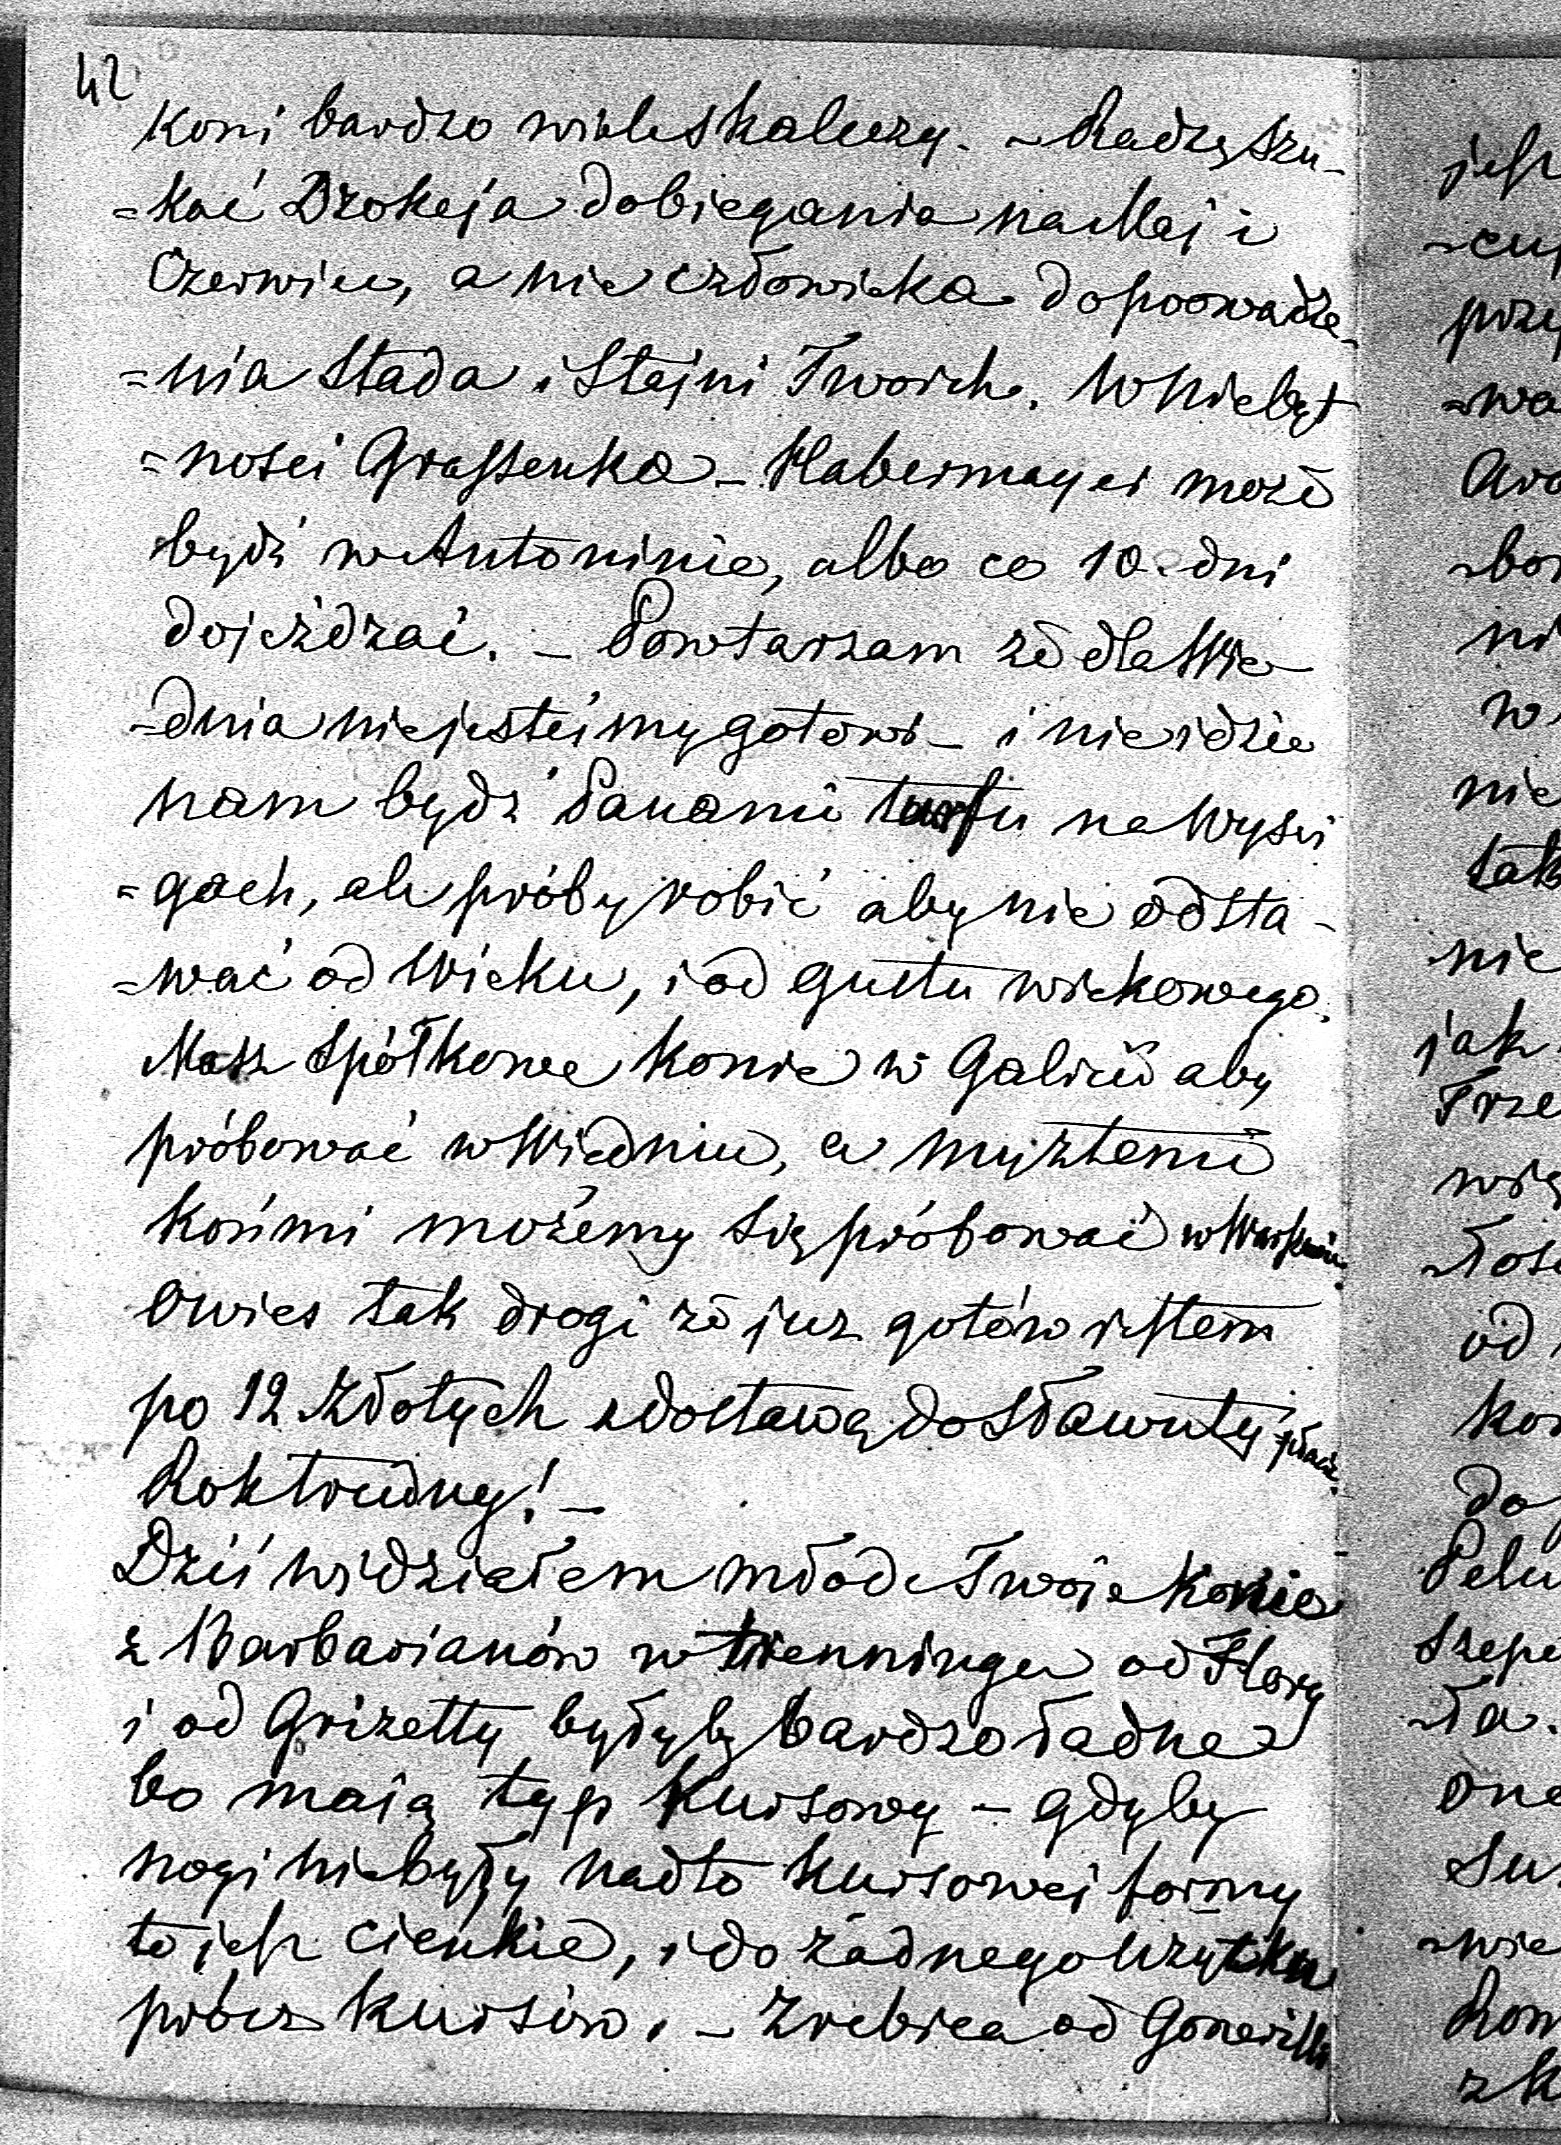 42
Koni bardzo wiele skaleczy. – Radzę szu-
=kać Dżokeja do biegania na Maj i
Czerwiec, a nie człowieka do poowadze-
=nia Stada i Stajni Twoich. W Niebyt
=ności Grassenka – Habermayer może
bydź w Antoninie, albo co 10 dni
dojeżdzać. – Powtarzam że dla Wie-
-dnia niejesteśmy gotowi – i nie idzie
nam bydź Panami turfu na Wyści
=gach, ale próby robić aby nie odsta-
=wać od Wieku, i od gustu wiekowego.
Masz Spółkowe Konie w Galicii aby
próbować w Wiedniu, a my z temi
końmi możemy się próbować w Warszawie.
Owies tak drogi że juz gotów jestem
po 12 Złotych z dostawą do Sławuty płacić.
Rok trudny! –
Dziś widziałem młode Twoie Konie
z Barbarianów w trenningu od Flory
i od Grizetty byłyby bardzo ładne
bo maią typ Kursowy – gdyby
nogi niebyły nadto Kursowej formy
to jest cienkie, i do żadnego użytku
prócz kursów. – Zrebica od Gonerilli
jest
-cu
prze
-wa
Ara
-bo
ni
w
nie
tak
nie
jak
Trze
wię
-łoś
od
kon
do
Pelu
Szepe
-ła.
one
Su
-wie
Rom
z k